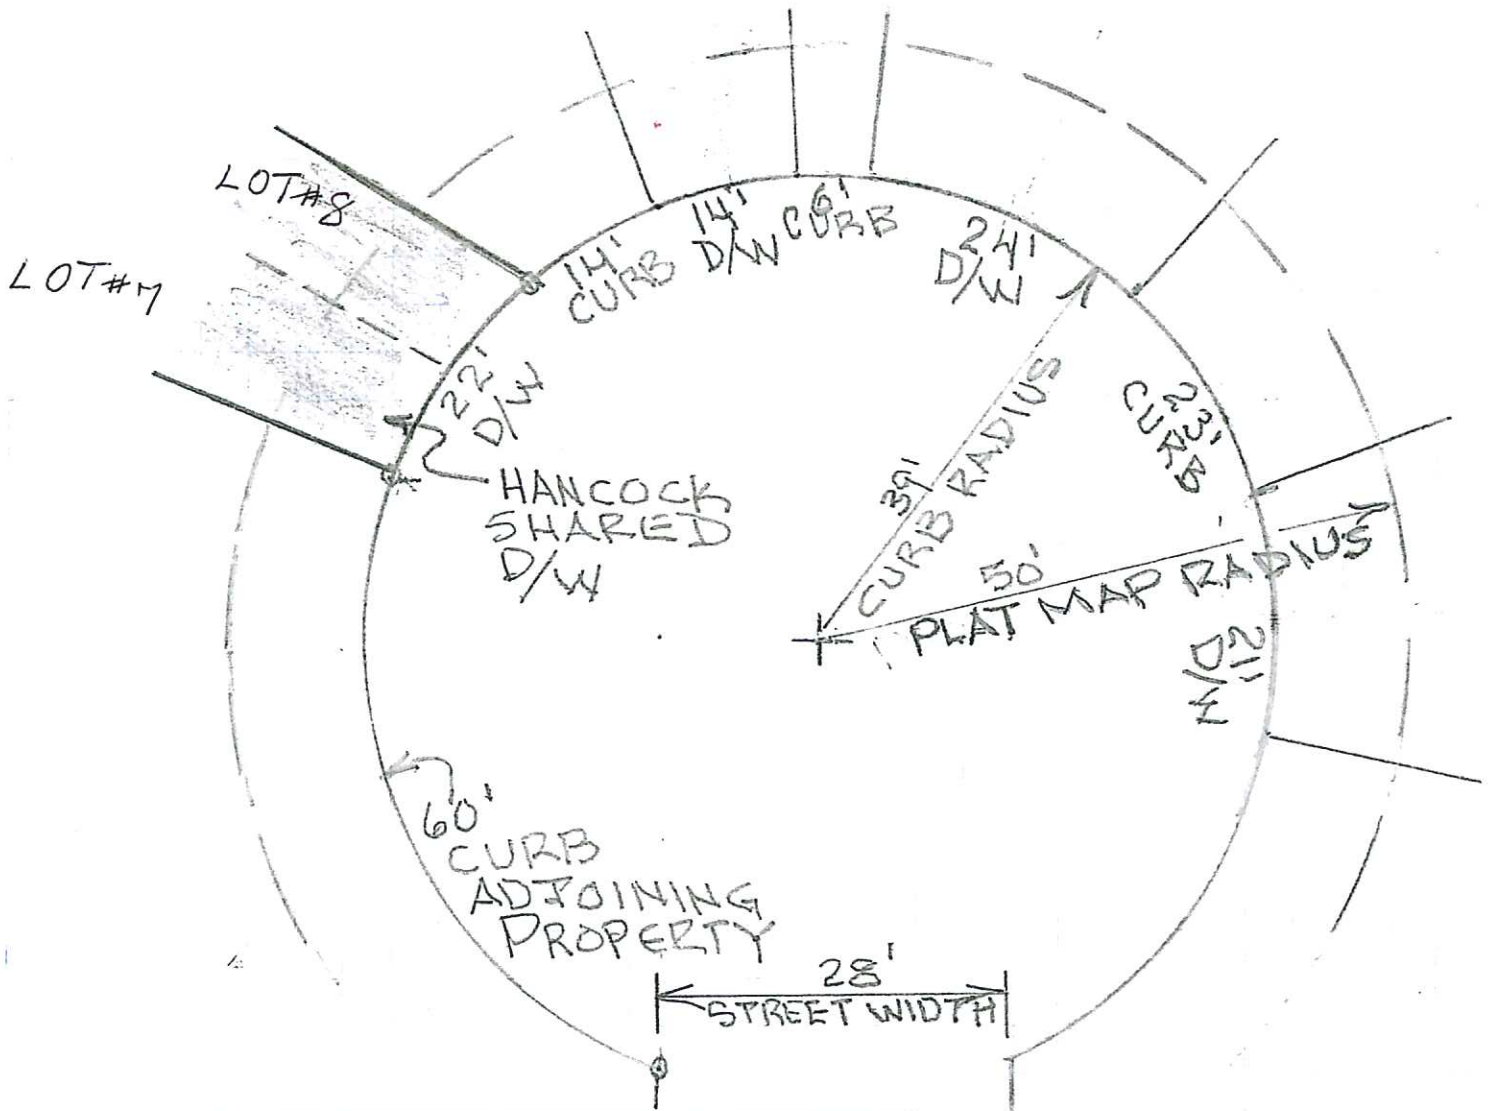 LOT#8
LOT#7
14'
CURB
14'
D/W
6'
CURB
24'
D/W
22'
D/W
23'
CURB
HANCOCK
SHARED
D/W
39'
CURB RADIUS
50'
PLAT MAP RADIUS
21'
D/W
60'
CURB
ADJOINING
PROPERTY
28'
STREET WIDTH